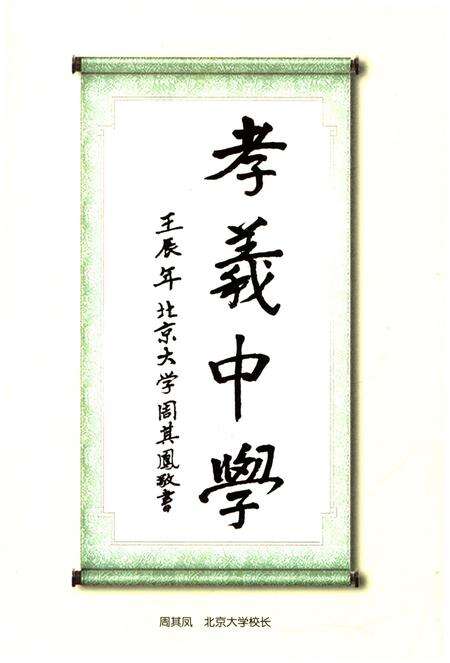 孝義中學
壬辰年北京大学周其鳳敬書
周其凤 北京大学校长